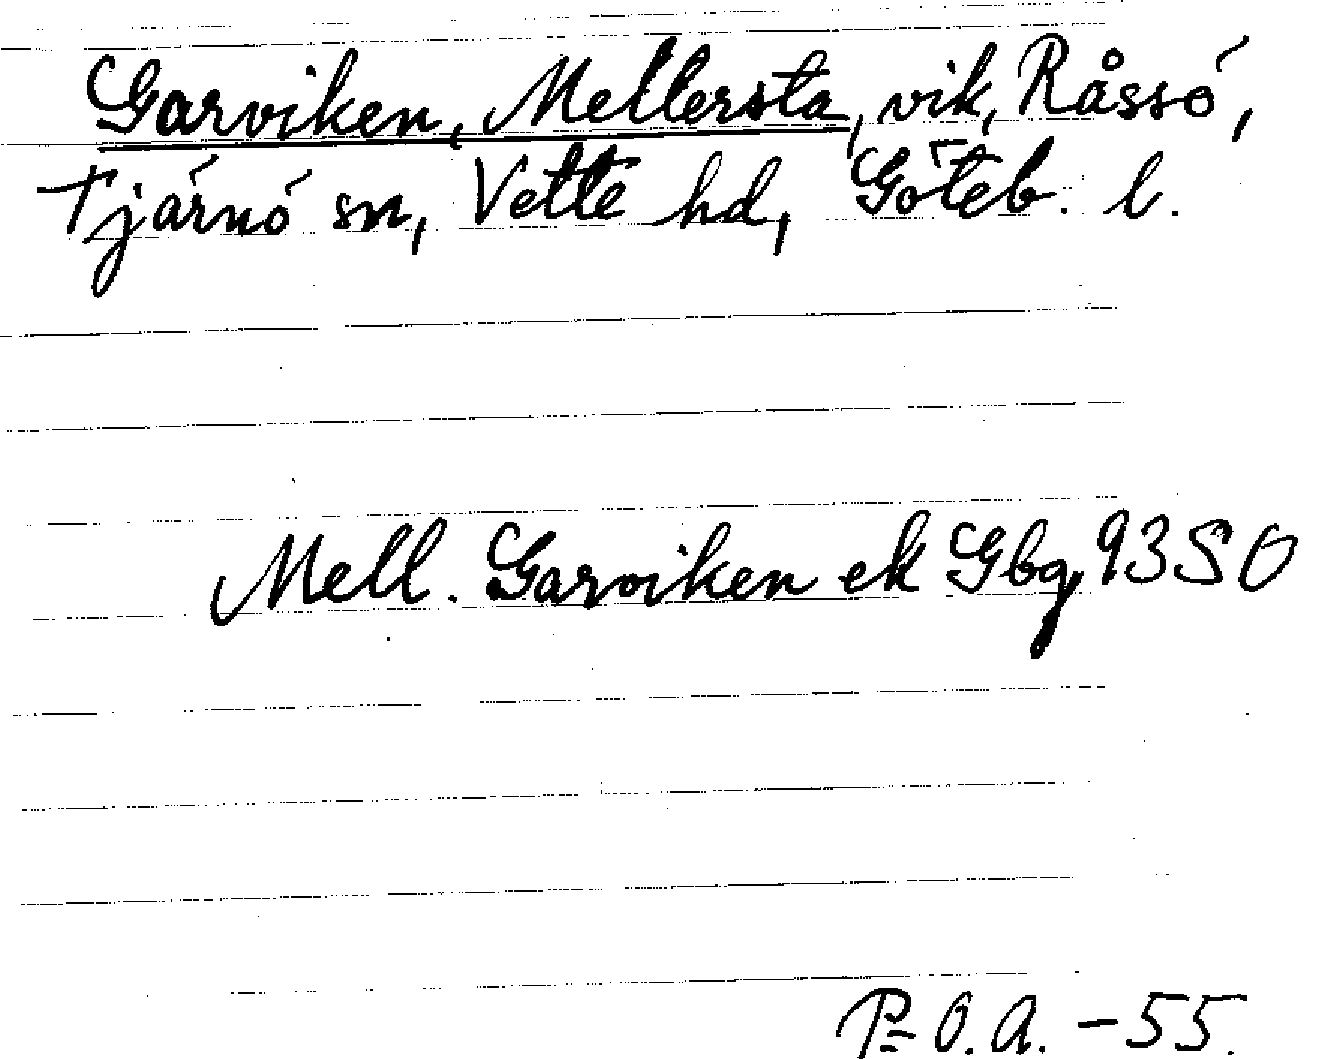 Garviken, Mellersta, vik, Råssö,
Tjärnö sn, Vette hd, Göteb. l.
Mell. Garviken ek Gbg 93 SO
P= O.A. -55.